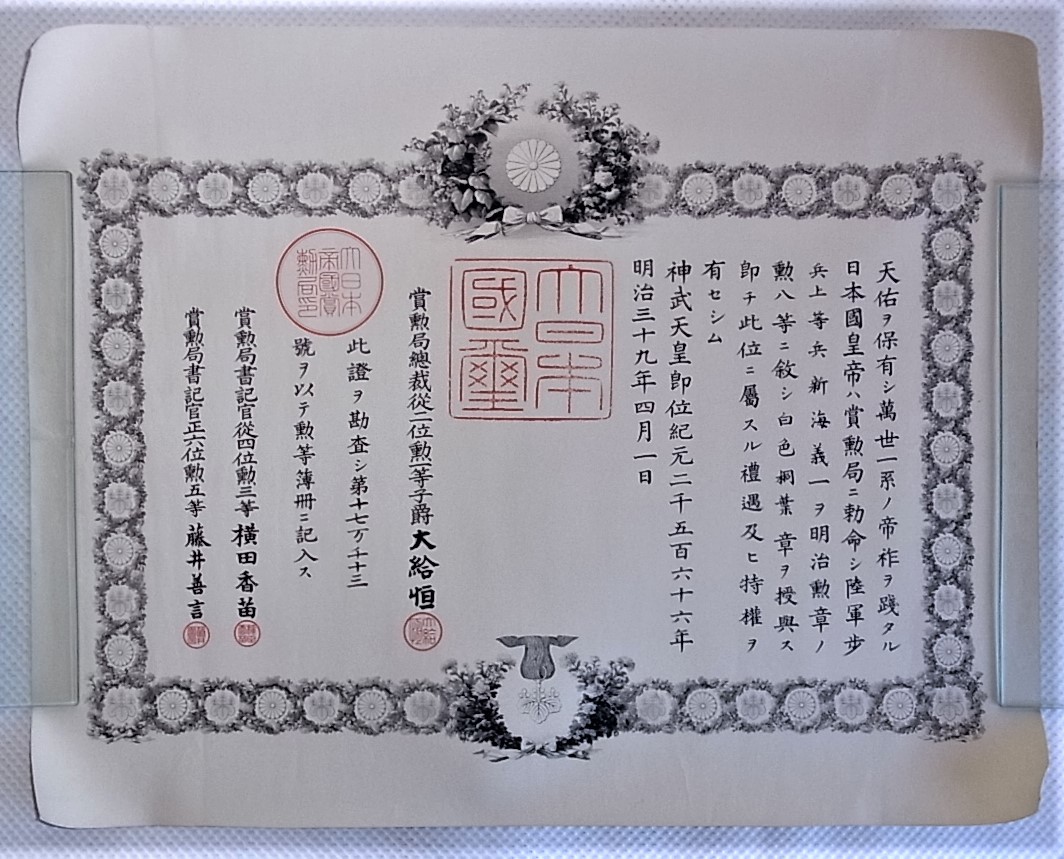 天佑ヲ保有シ萬世一系ノ帝祚ヲ踐タル
日本國皇帝ハ賞勲局ニ勅命シ陸軍步
兵上等兵新海義一ヲ明治勲章ノ
勲八等ニ敘シ白色桐葉章ヲ授與ス
卽チ此位ニ屬スル禮遇及ヒ特權ヲ
有セシム
神武天皇卽位紀元二千五百六十六年
明治三十九年四月一日
大日本國璽
賞勲局總裁從二位勲一等子爵大給恒
大日本帝國賞勲局印
此證ヲ勘査シ第十七万千十三
號ヲ以テ勲等簿冊ニ記入ス
賞勲局書記官從四位勲三等橫田香苗
賞勲局書記官正六位勲五等藤井善言